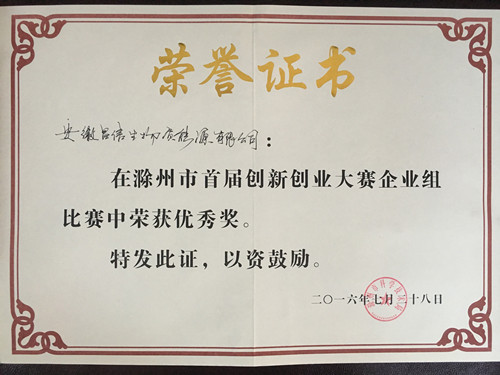 荣誉证书
安徽昌信生物质能源有限公司：
在滁州市首届创新创业大赛企业组
比赛中荣获优秀奖。
特发此证，以资鼓励。
二〇一六年七月二十八日